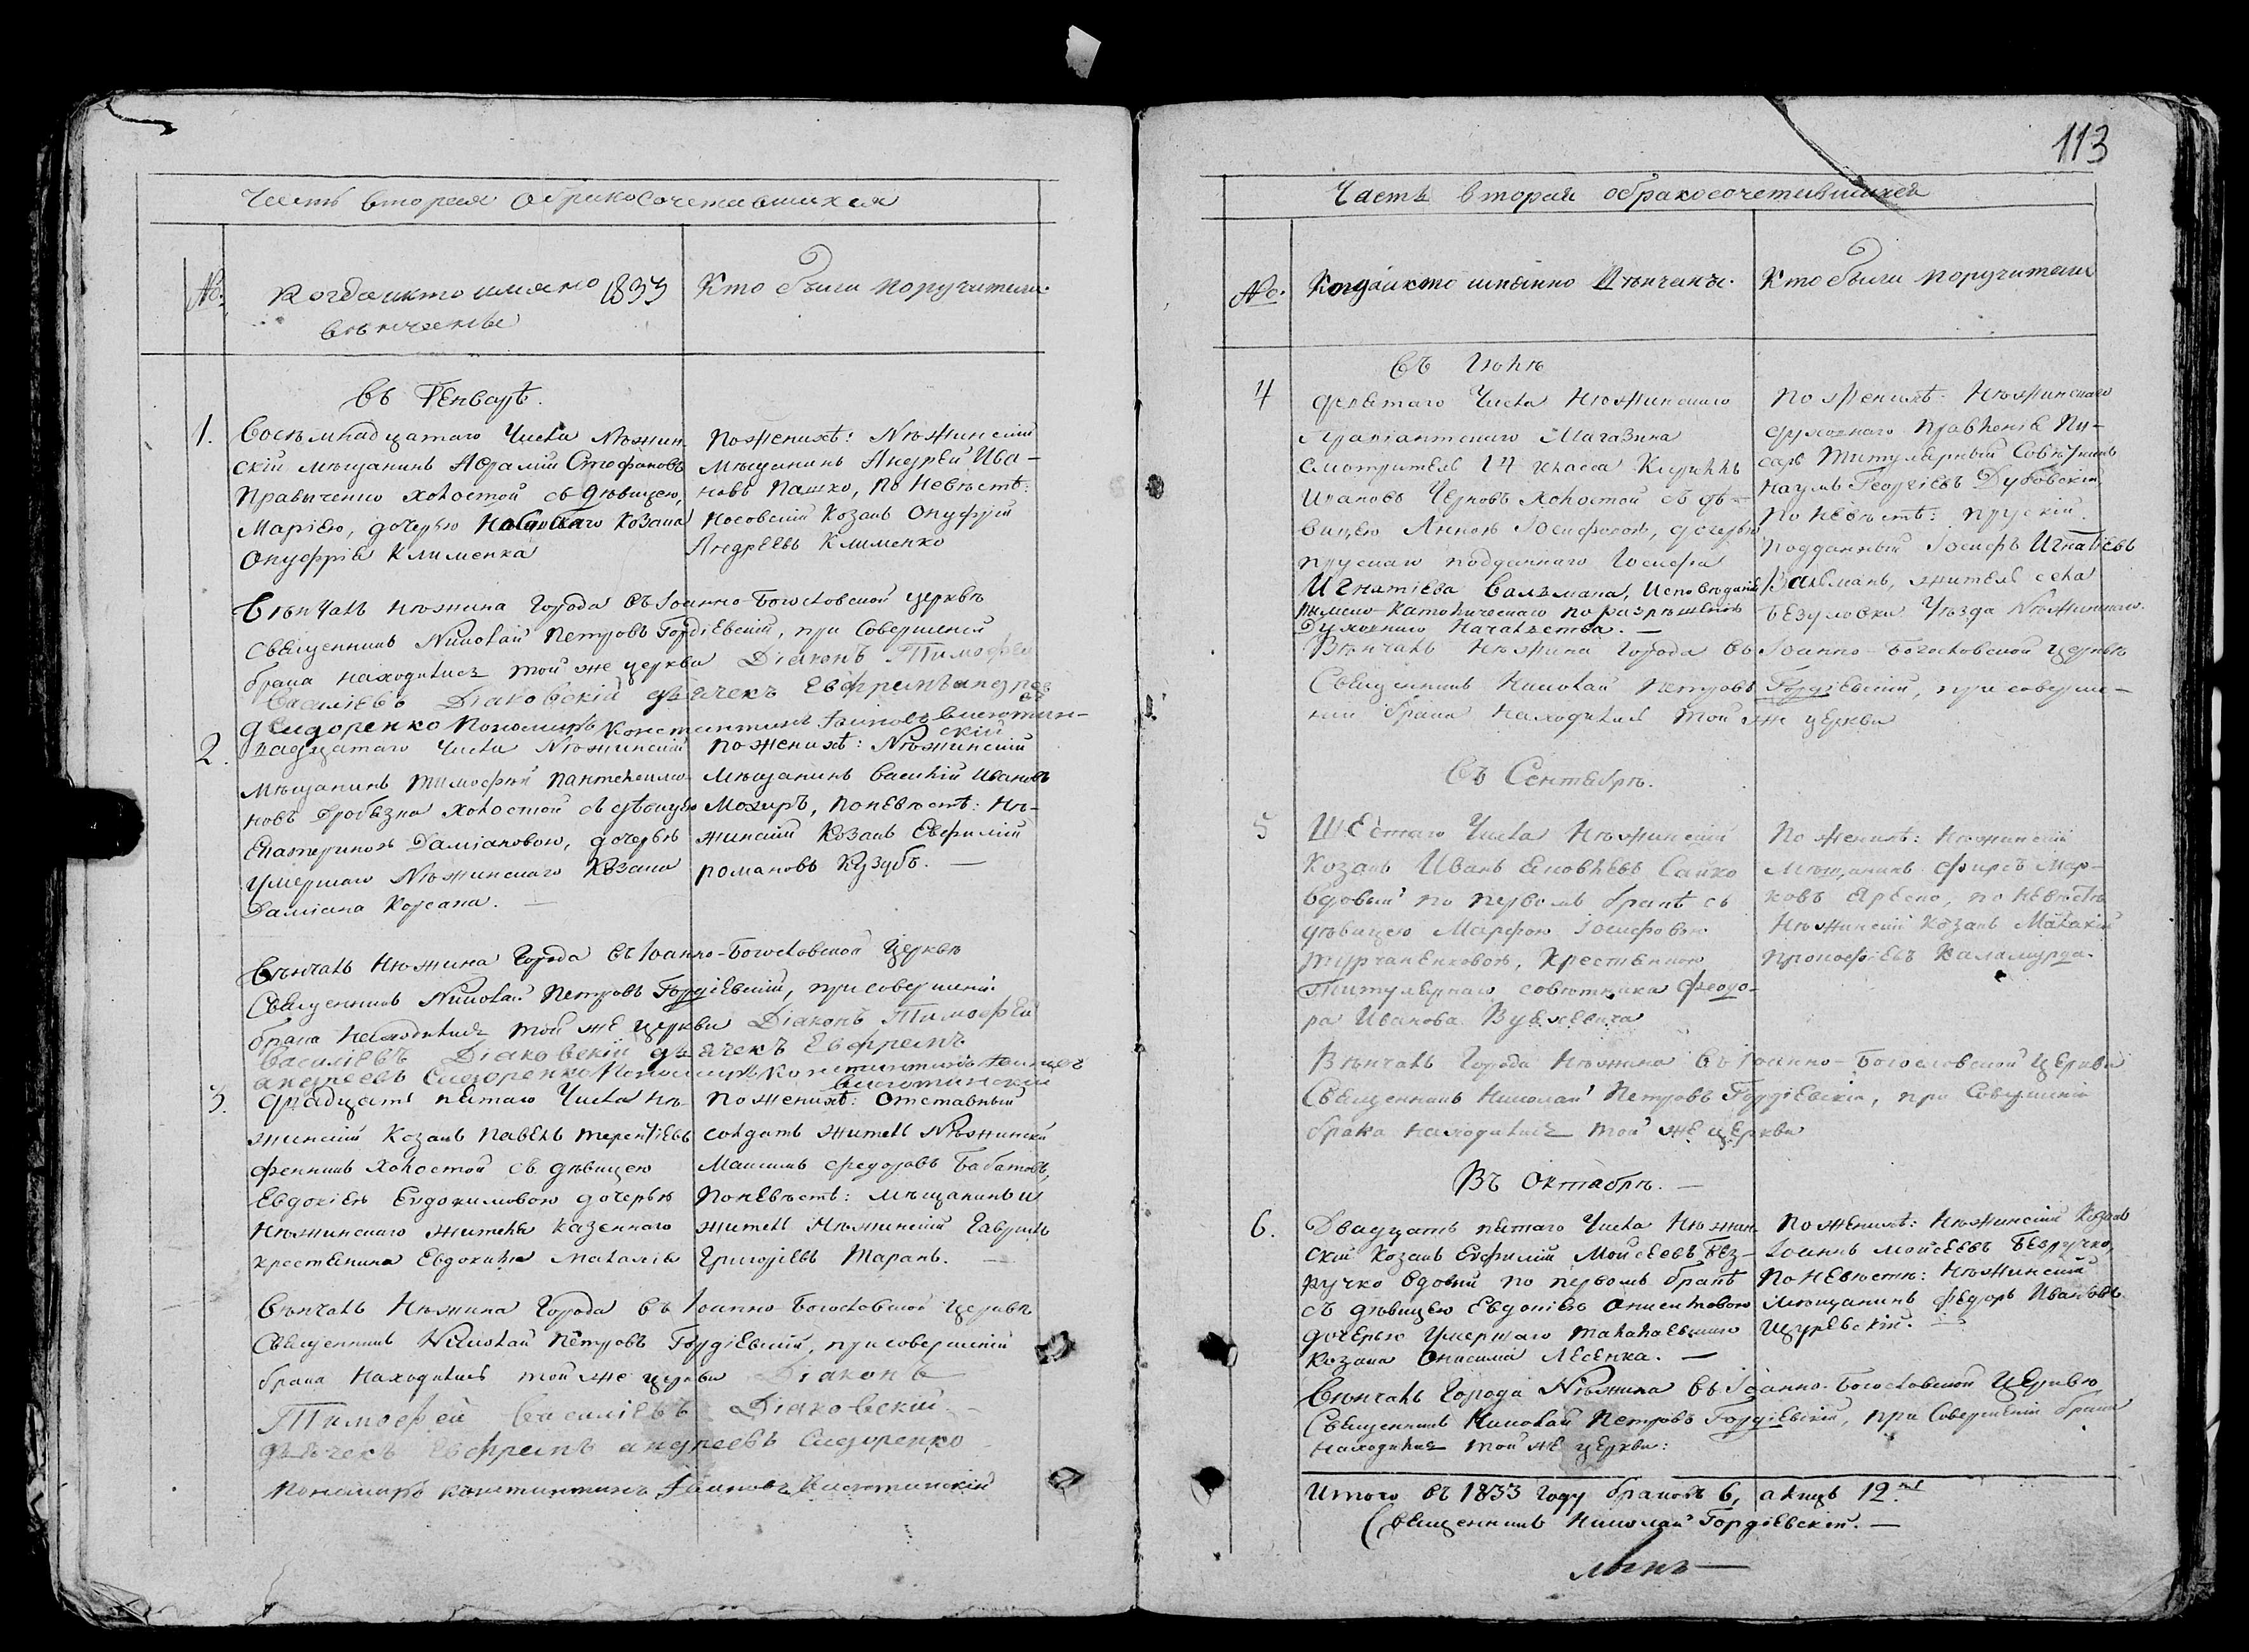 Часть вторая о бракосочетавшихся
№.
Когда и кто имянно 1833
венчаны
Кто были поручители.
въ Генварѣ.
1.
Восѣмнадцатаго Числа Нѣжин-
скій мѣщанинъ Аврамій Стефановъ
Правиченко холостой съ дѣвицею,
Маріею, дочерью Носовскаго Козака
Онуфрія Клименка
По женихѣ: Нѣжинскій
Мѣщанинъ Андрей Ива-
новъ Пашко, по Невѣстѣ:
Носовскій Козакъ Онуфрій
Андреевъ Клименко
Вѣнчалъ Нѣжина Города въ Іоанно-Богословской церквѣ
Священникъ Николай Петровъ Гордіевскій, при Совершеніи
брака находились той же церкви Діаконъ Тимофей
Василіевъ Діаковскій дьячекъ Евфремъ андреевъ
Сидоренко Пономарь Константинъ Іаковъ Висотин-
скій
2.
Двадцатаго Числа Нѣжинскій
Мѣщанинъ Тимофей Пантелеимо-
новъ Дробязка холостой съ дѣвицею
Екатериною Даміановою, дочерью
Умершаго Нѣжинскаго Козака
Даміана Корсака. —
По женихѣ: Нѣжинскій
Мѣщанинъ Василій Ивановъ
Мохиръ, по невѣстѣ: Нѣ-
жинскій Козакъ Евфимій
Романовъ Кузубъ. —
Вѣнчалъ Нѣжина Города въ Іоанно-Богословской Церквѣ
Священникъ Николай Петровъ Гордіевскій, при совершеніи
брака Находились той же церкви Діаконъ Тимофей
Василіевъ Діаковскій дьячекъ Евфремъ
андреевъ Сидоренко Пономарь Константинъ
Висотинскій
3.
Двадцать пятаго Числа Нѣ-
жинскій Козакъ Павелъ Терентіевъ
холостой съ дѣвицею
Евдокіею Евдокимовою дочерью
Нѣжинскаго жителя казеннаго
крестянина Евдокима
По женихѣ: Отставный
солдатъ житель Нѣжинскій
Максимъ Федоровъ
По невѣстѣ: мѣщанинъ и
житель Нѣжинскій Гаврiилъ
Григоріевъ Таранъ. —
Вѣнчалъ Нѣжина Города въ Іоанно Богословской церквѣ
Священникъ Николай Петровъ Гордіевскій, при совершеніи
брака Находились той же церкви Діаконъ
Тимофей Василіевъ Діаковскій
дьячекъ Евфремъ андреевъ Сидоренко
Пономарь константинъ Висотинскій
113
Часть вторая о бракосочетавшихся
№.
Когда и кто имянно Вѣнчаны.
Кто были поручители
Въ Іюнѣ
4
Девятаго Числа Нѣжинскаго
Провіантскаго Магазина
Смотритель 14 класса Кириллъ
Ивановъ Черновъ холостой съ дѣ-
вицею Анною Іосифовою, дочерью
прускаго подданнаго Іосифа
Игнатіева Валзмана, Исповѣданія
Римско-Католическаго по разрѣшенію
Духовнаго Начальства. —
По женихѣ: Нѣжинскаго
Духовнаго Правленія Пи-
сарь Титулярный Совѣтникъ
Наумъ Георгіевъ Дубовскій
по невѣстѣ: прускій
подданный Іосифъ Игнатіевъ
Валзманъ, житель села
Безуловки Уѣзда Нѣжинскаго.
Вѣнчалъ Нѣжина Города въ Іоанно-Богословской церквѣ
Священникъ Николай Петровъ Гордіевскій, при соверше-
ніи брака находились той же церкви
Въ Сентябрѣ.
5
Шестаго Числа Нѣжинскій
Козакъ Иванъ Яковлевъ Сайко
вдовый по первомъ бракѣ съ
дѣвицею Марфою Іосифовою
Турчаненковою, Крестянкою
Титулярнаго совѣтника Феодо-
ра Иванова
По женихѣ: Нѣжинскій
Мѣщанинъ Фирсъ Мар-
ковъ Ярѣско, по невѣстѣ
Нѣжинскій Козакъ Малахій
Прокофіевъ Каламурда.
Вѣнчалъ Города Нѣжина въ Іоанно-Богословской Церкви
Священникъ Николай Петровъ Гордіевскій, при Совершеніи
брака находились той же церкви
Въ Октябрѣ. —
6.
Двадцать пятаго Числа Нѣжин-
скій Козакъ Евфимій Мойсеевъ Без-
ручко вдовый по первомъ бракѣ
съ дѣвицею Евдокіею Онисимовою
дочерью Умершаго Талалаевскаго
Козака Онисима Лесенка. —
По женихѣ: Нѣжинскій Козакъ
Іоаннъ Мойсеевъ Безручко,
По Невѣстѣ: Нѣжинскій
Мѣщанинъ Федоръ Ивановъ
Щуревскій.
Вѣнчалъ Города Нѣжина въ Іоанно-Богословской Церквѣ
Священникъ Николай Петровъ Гордіевскій, при Совершеніи брака
Находились той же церкви:
Итого въ 1833 году браковъ 6, а лицъ 12.
Священникъ Николай Гордіевскій. —